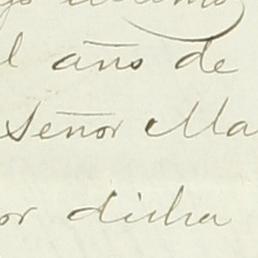 l año de
Señor Ma
or dicha